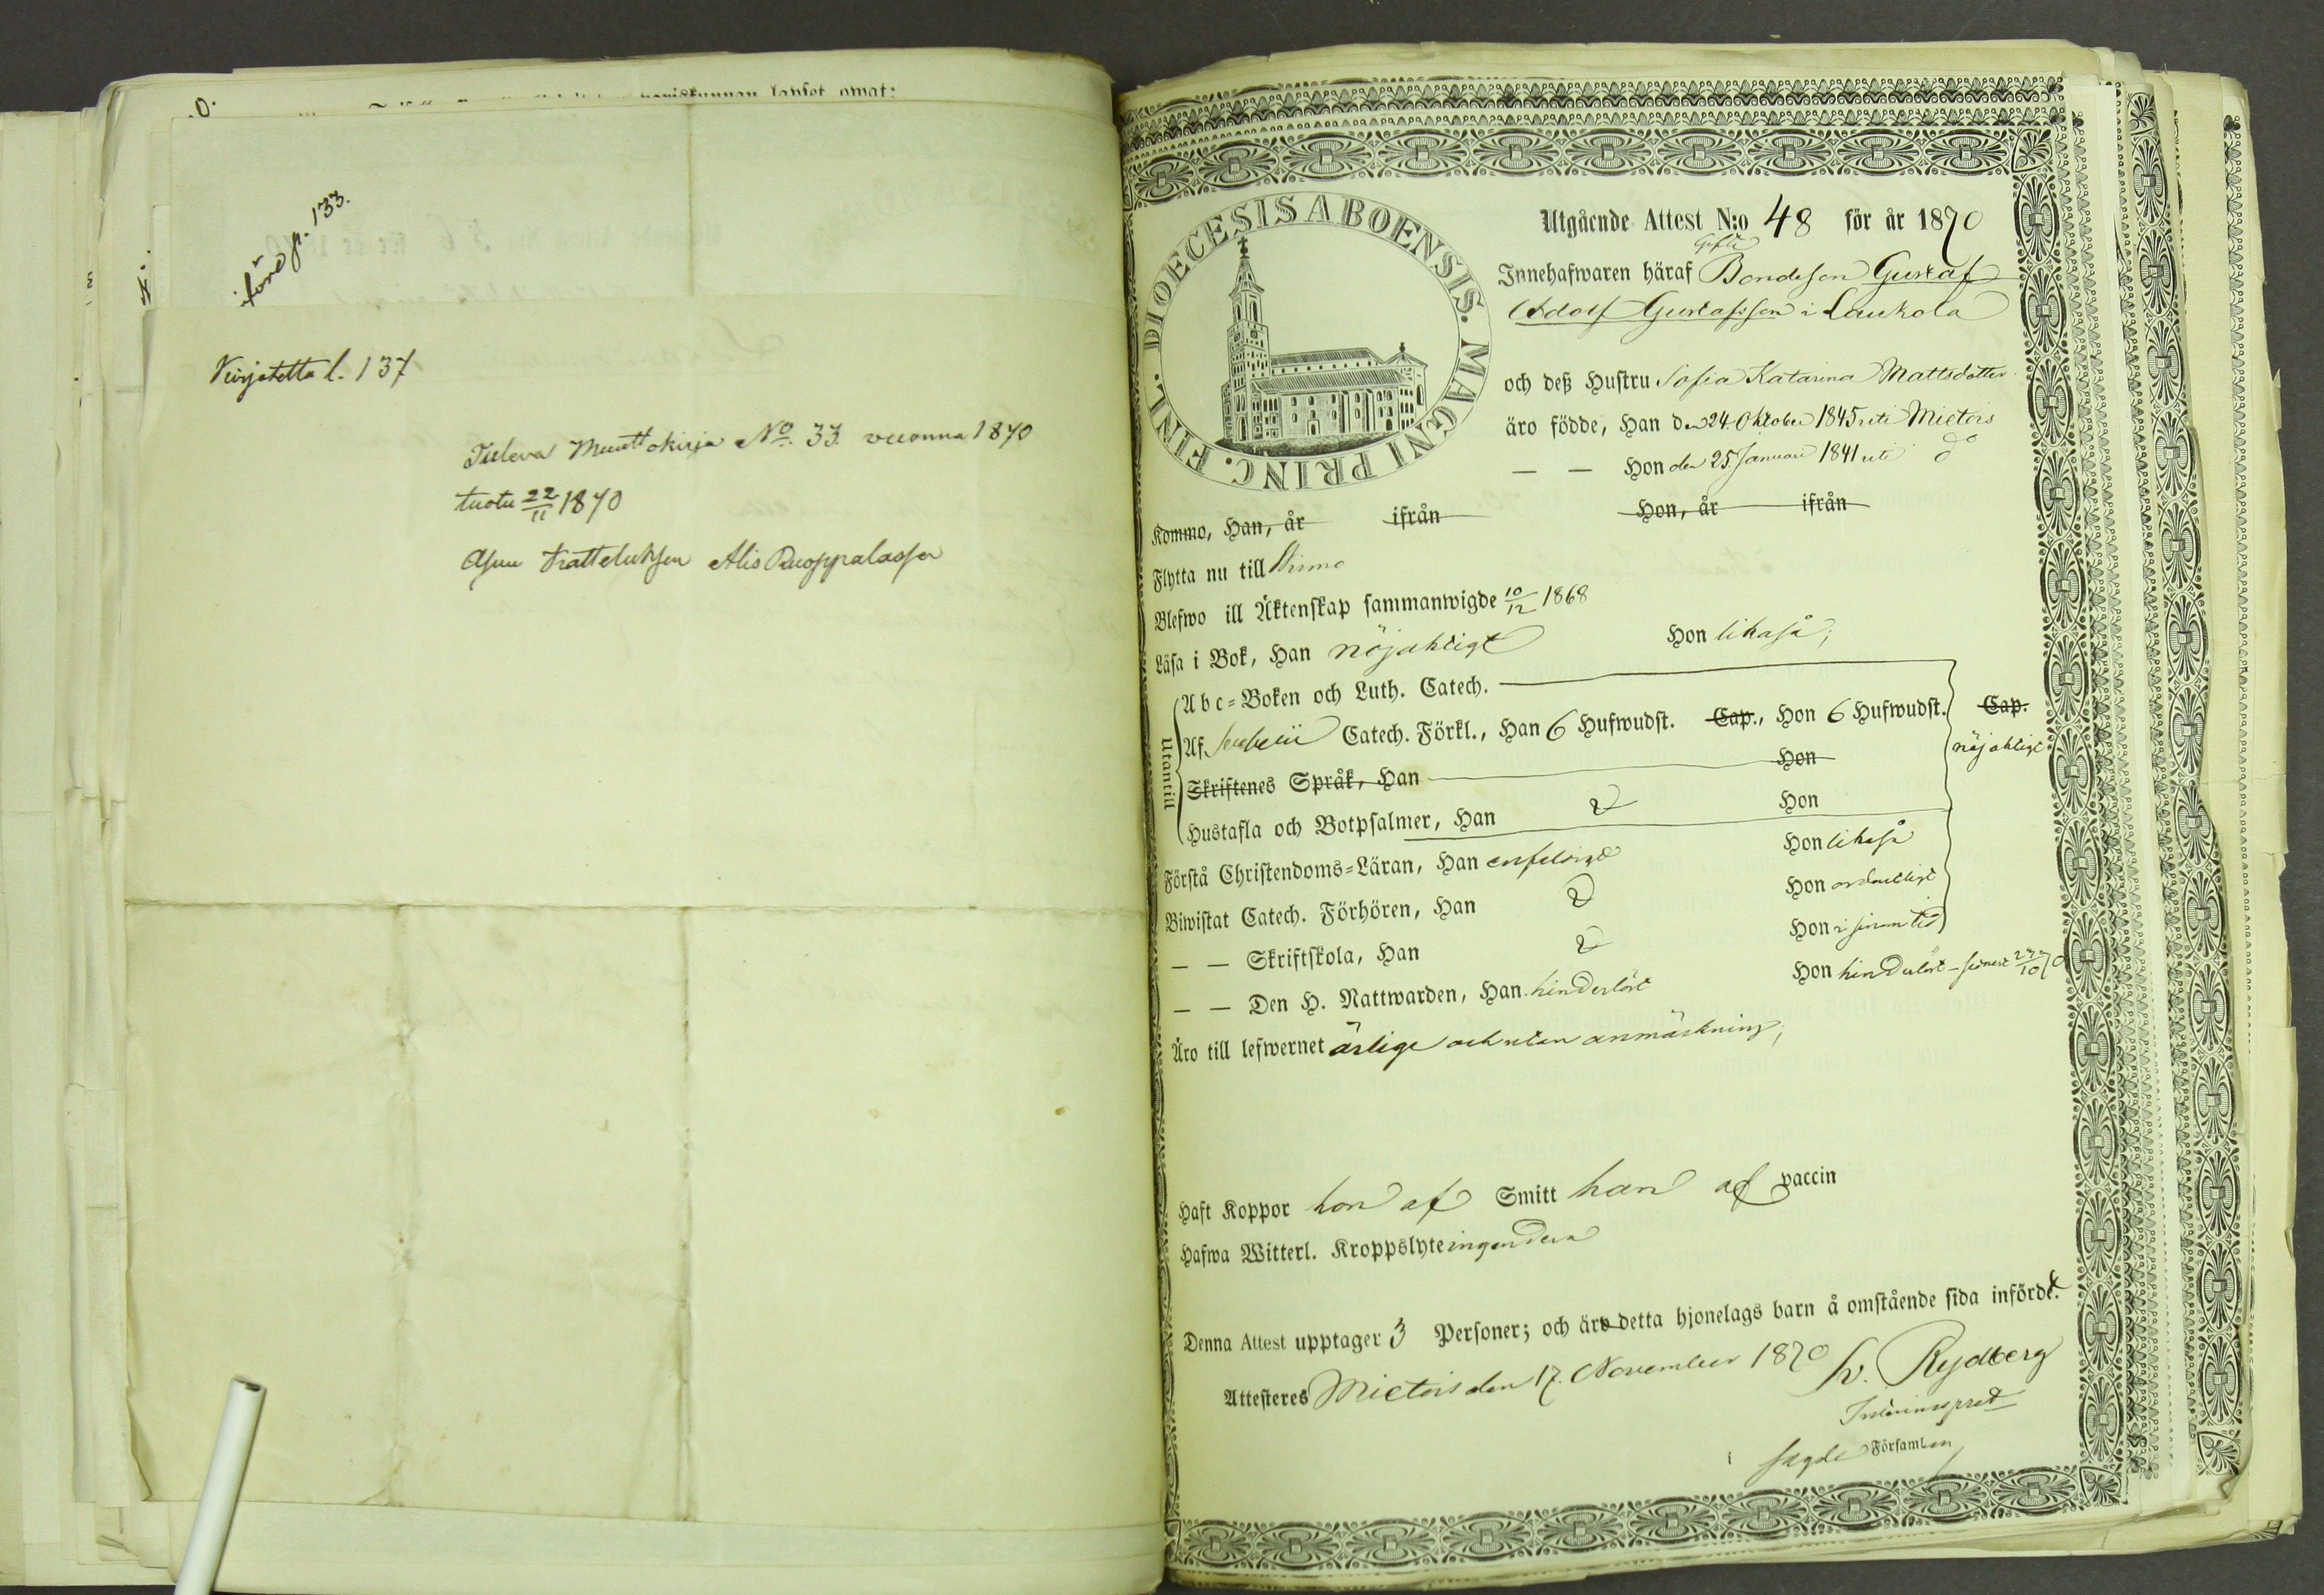 införd p. 133.
Kirjotettu l. 137
Tuleva Muuttokirja No. 33 vuonna 1870
tuotu 22/11 1870
Asuu Trätteluksen Alis Ruoppalassa
DIOECESIS ABOENSIS. MAGNI PRINC. FINL.
Utgående Attest N:o 48 för år 1870
Gifte
Innehafwaren häraf Bondeson Gustaf
Adolf Gustafsson i Laukola
och deß Hustru Sofia Katarina Mattsdotter
äro födde, Han den 24 Oktober 1845 uti Mietois
— — Hon den 25 Januari 1841 uti do
Kommo, Han, år ifrån Hon, år ifrån
Flytta nu till Virmo
Blefwo ill Äktenskap sammanwigde 10/12 1868
Läsa i Bok, Han nöjaktigt Hon likaså;
Utantill
Abc-Boken och Luth. Catech.
Af Catech. Förkl., Han 6 Hufwudst. Cap., Hon 6 Hufwudst. Cap.
nöjaktigt
Skriftenes Språk, Han Hon
Hustafla och Botpsalmer, Han Hon
Förstå Christendoms-Läran, Han enfaldigt Hon likaså
Biwistat Catech. Förhören, Han Hon ordentligt
— — Skriftskola, Han Hon i sinom tid
— — Den H. Nattwarden, Han hinderlöst Hon hinderlöst – senast 23/10 70
Äro till lefwernet ärlige och utan anmärkning;
Haft Koppor hon af Smitt han af vaccin
Hafwa Witterl. Kroppslyte ingendera
Denna Attest upptager 3 Personer; och äro detta hjonelags barn å omstående sida införde.
Attesteres Mietois den 17. November 1870 Rydberg
i sagde Församling